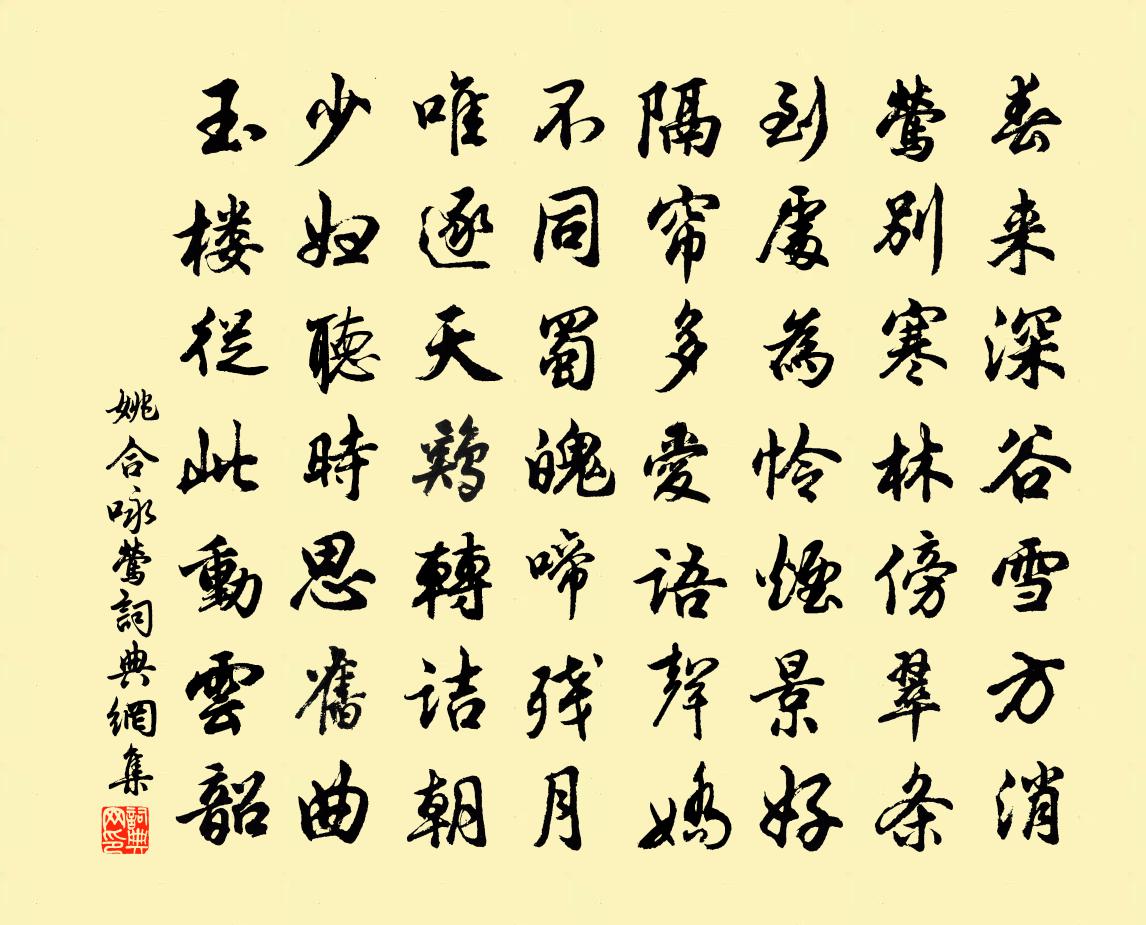 春来深谷雪方消
鶯別寒林傍翠条
到處為怜煙景好
隔帘多愛語聲嬌
不同蜀魄啼残月
唯逐天鷄轉詰朝
少妇聽時思舊曲
玉楼從此動雲韶
姚合咏鶯詞典網集
詞典网印